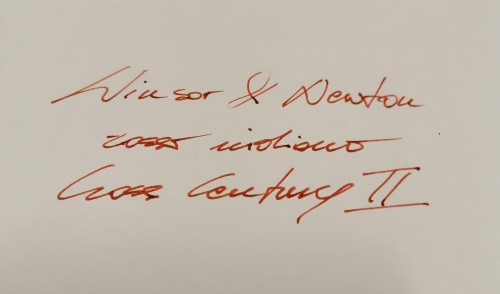 Winsor & Newton
rosso indiano
Cross Century II